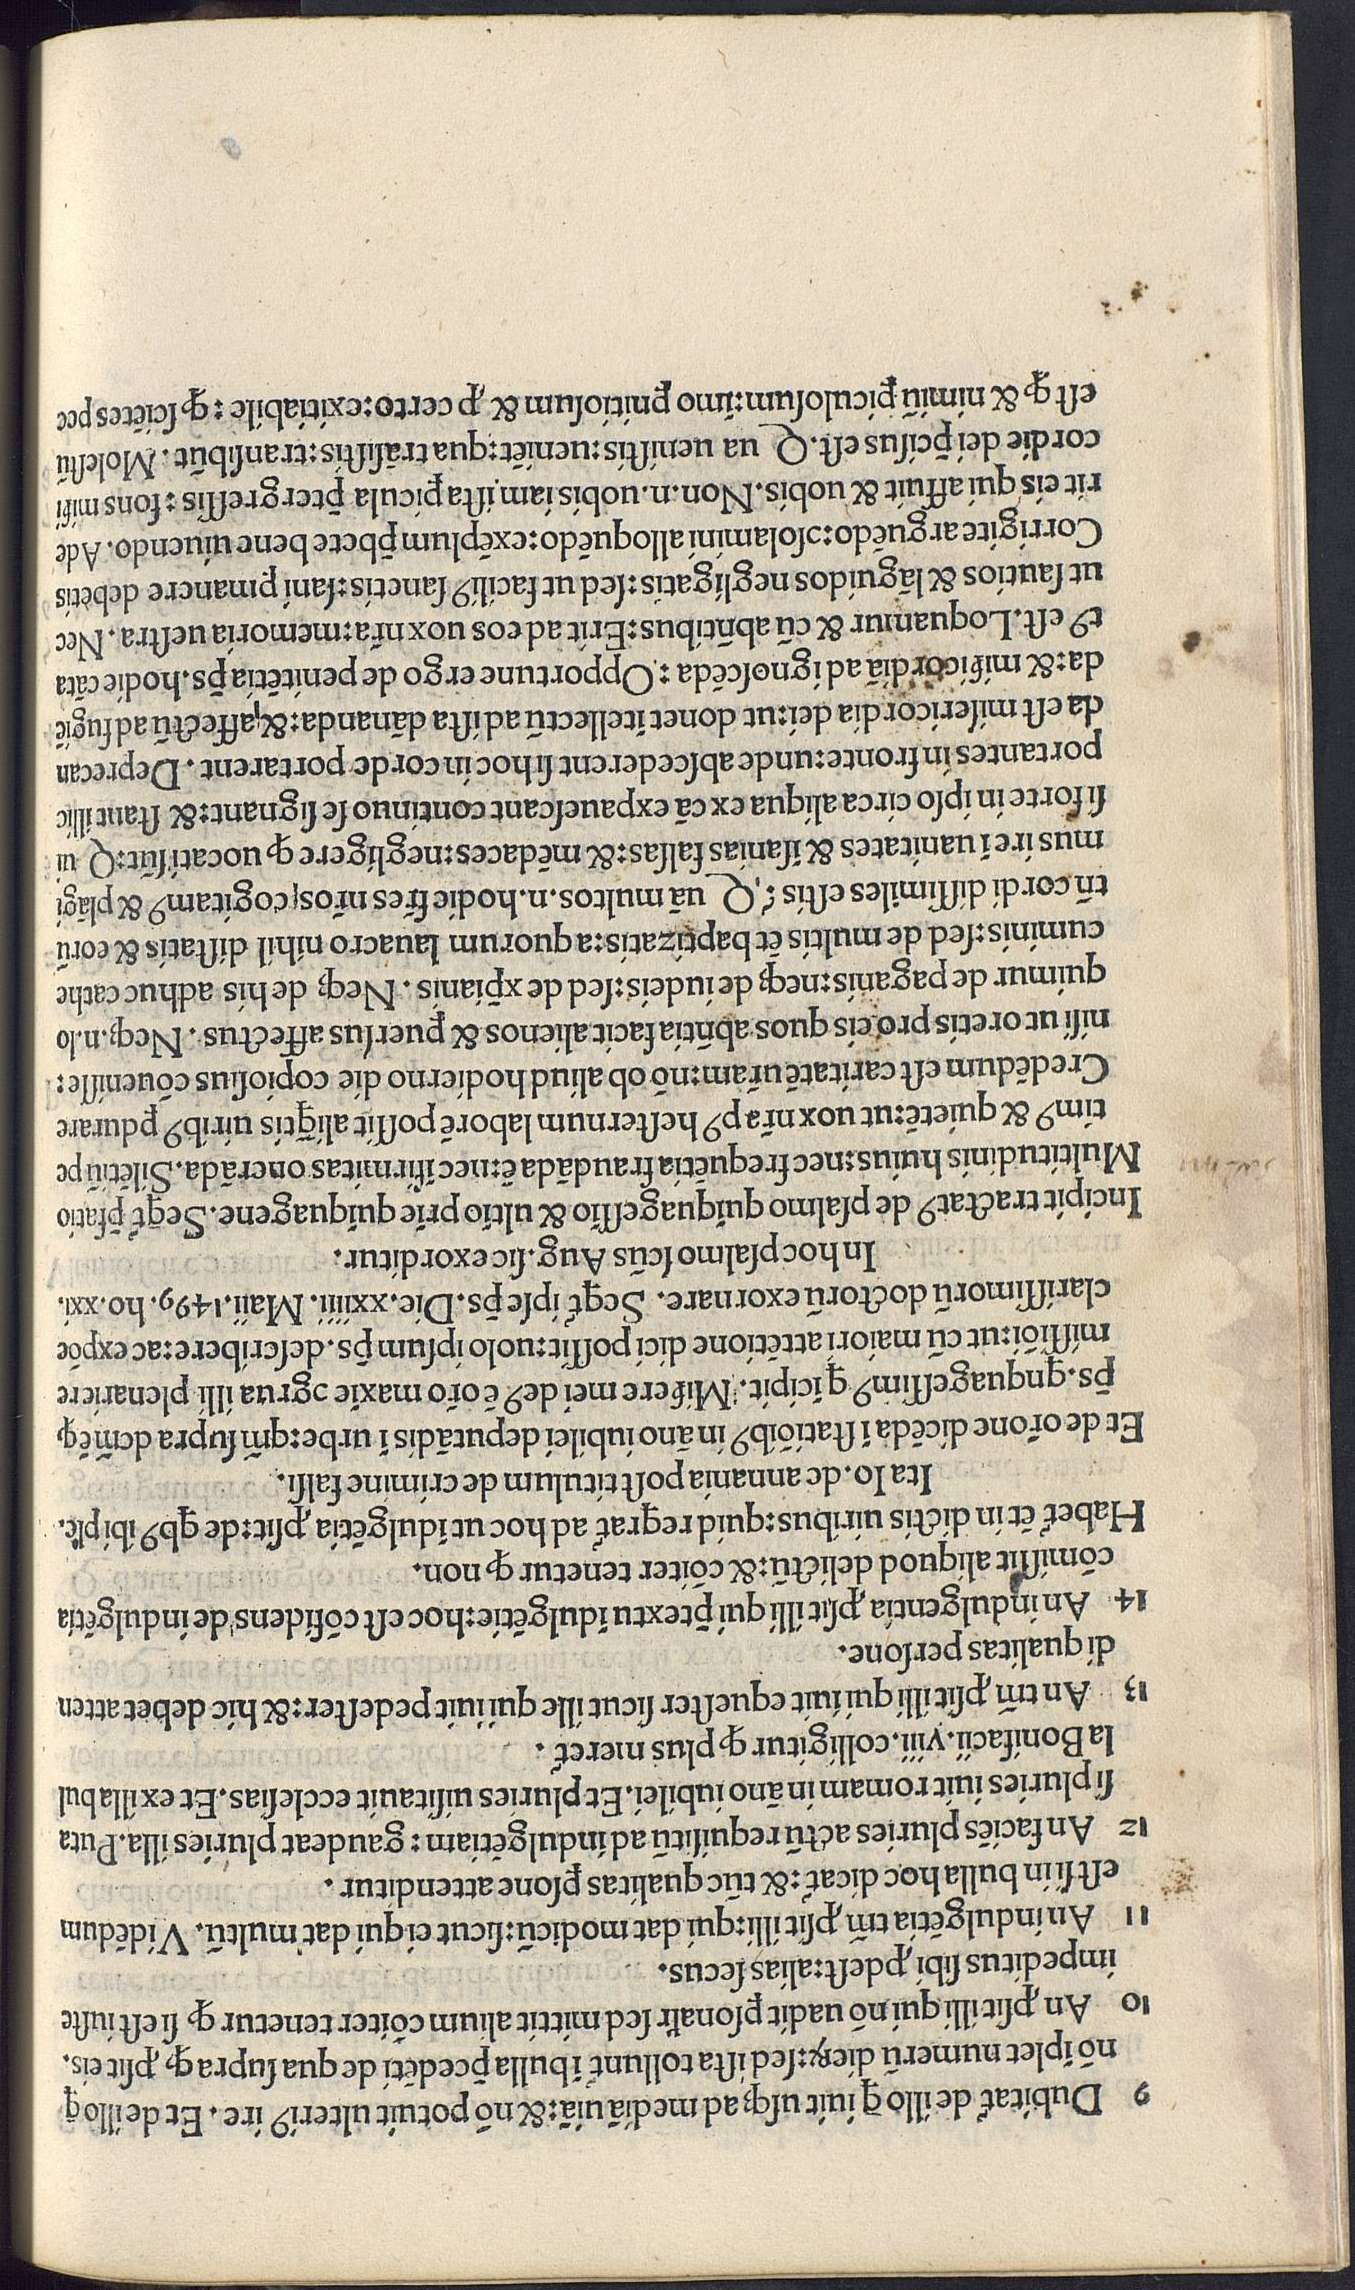 9 Dubitat̃ de illo q̃ iuit uſq; ad mediā uiā: & nō potuit ulteriꝰ ire. Et de illo q̃
nō īplet numerū dieꝝ: ſed iſta tollunt̃ ī bulla p̄cedēti de qua ſupra ꝙ ꝓſit eis.
10 An ꝓſit illi qui nō uadit ꝑſonalr̃ ſed mittit alium cōiter tenetur ꝙ ſi eſt iuſte
impeditus ſibi ꝓdeſt: alias ſecus.
11 An indulgētia tm̄ ꝓſit illi: qui dat modicū: ſicut ei qui dat multū. Vidēdum
eſt ſi in bulla hoc dicat̃: & tūc qualitas ꝑſone attenditur.
12 An faciēs pluries actū requiſitū ad indulgētiam: gaudeat pluries illa. Puta
ſi pluries iuit romam in āno iubilei. Et pluries uiſitauit eccleſias. Et ex illa bul
la Bonifacii. viii. colligitur ꝙ plus meret̃.
13 An tm̄ ꝓſit illi qui iuit equeſter ſicut ille qui iuit pedeſter: & hic debet atten
di qualitas perſone.
14 An indulgentia ꝓſit illi qui p̄textu īdulgētie: hoc eſt cōfidens de indulgētia
cōmiſit aliquod delictū: & cōiter tenetur ꝙ non.
Habet̃ ēt in dictis uiribus: quid reqrat̃ ad hoc ut īdulgētia ꝓſit: de qbꝰ ibi plē.
Ita Io. de annania poſt titulum de crimine falſi.
Et de ofone dicēda ī ſtatiōibꝰ in āno iubilei deputādis ī urbe: qm̄ ſupra dcm̄ ē ꝙ
p̄s. qnquageſſimꝰ q īcipit. Miſere mei deꝰ ē ofo maxie ɔgrua illi plenarie re
miſſiōi: ut cū maiori attētione dici poſſit: uolo ipſum p̄s. deſcribere: ac expōe
clariſſimorū doctorū exornare. Seqt̃ ipſe p̄s. Die. xxiiii. Maii. 1496. ho. xxi.
In hoc pſalmo ſcūs Aug. ſic exorditur:
Incipit tractatꝰ de pſalmo quiquageſſio & ultio prie quiquagene. Seqt̃ p̄fatio
Multitudinis huius: nec frequētia fraudāda ē: nec īfirmitas onerāda. Silētiū pe
timꝰ & quietē: ut uox nr̄a pꝰ heſternum laborē poſſit aliqtis uiribꝰ ꝑdurare
Credēdum eſt caritatē ur̄am: nō ob aliud hodierno die copioſius cōueniſſe:
niſi ut oretis pro eis quos abn̄tia facit alienos & ꝑuerſus affectus. Neq; n. lo
quimur de paganis: neq; de iudeis: ſed de xp̄ianis. Neq; de his adhuc cathe
cuminis: ſed de multis ēt baptizatis: a quorum lauacro nihil diſtatis & eorū
tn̄ cordi diſſimiles eſtis: Q uā multos. n. hodie fr̄es nr̄os cogitamꝰ & plāgi
mus ire ī uanitates & īſanias falſas: & mēdaces: negligere ꝙ uocati ſūt: Q ui
ſi forte in ipſo circa aliqua ex cā expaueſcant continuo ſe ſignant: & ſtant illic
portantes in fronte: unde abſcederent ſi hoc in corde portarent. Deprecan
da eſt miſericordia dei: ut donet ītellectū ad iſta dānanda: & affectū ad fugiē
da: & miſicordiā ad ignoſcēda: Opportune ergo de penitētia p̄s. hodie cāta
tꝰ eſt. Loquamur & cū abn̄tibus: Erit ad eos uox nr̄a: memoria ueſtra. Nec
ut ſautios & lāguidos negligatis: ſed ut faciliꝰ ſanetis: ſani ꝑmanere debetis
Corrigite arguēdo: ɔſolamini alloquēdo: exēplum p̄bete bene uiuendo. Ade
rit eis qui affuit & uobis. Non. n. uobis iam iſta ꝑicula p̄tergreſſis: fons miſi
cordie dei p̄ciſus eſt. Q ua ueniſtis: ueniēt: qua trāſiſtis: tranſibūt. Moleſtū
eſt ꝙ & nimiū ꝑiculoſum: imo ꝑnitioſum & ꝓ certo: exitiabile: ꝙ ſciētes pec